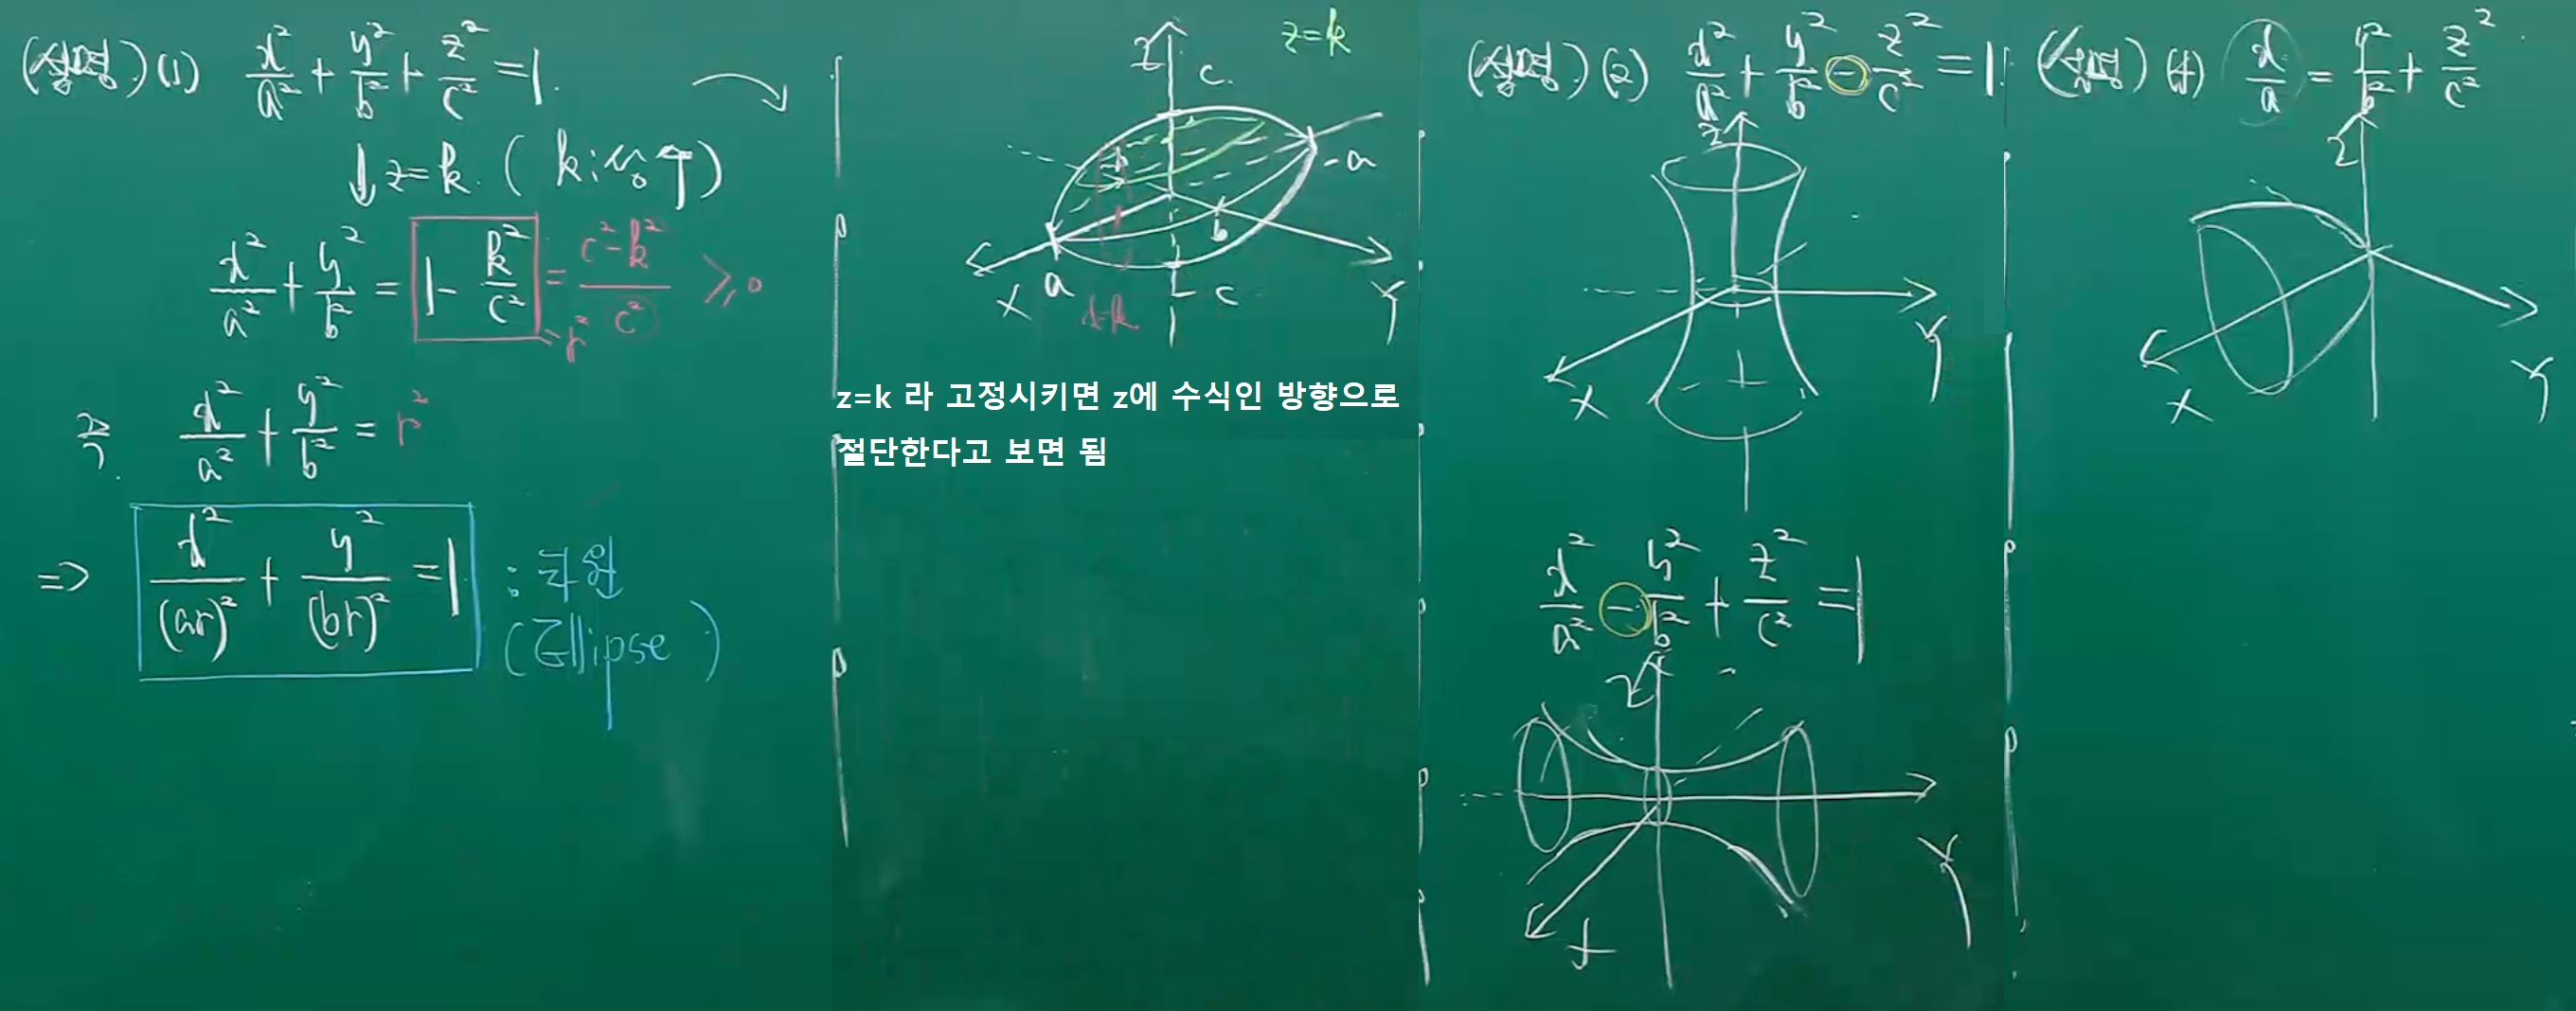 (설명) (1) x²/a² + y²/b² + z²/c² = 1.
↓ z=k. ( k : 상수 )
x²/a² + y²/b² = 1 - k²/c² = c²-k²/c² ≥ 0
= r²
즉, x²/a² + y²/b² = r²
=> x²/(ar)² + y²/(br)² = 1 : 타원
(Ellipse)
z=k
z
c.
-a
b
a
x
-c
y
x=k
z=k 라 고정시키면 z에 수식인 방향으로
절단한다고 보면 됨
(설명) (2) x²/a² + y²/b² - z²/c² = 1.
z
y
x
x²/a² - y²/b² + z²/c² = 1
z
y
x
(설명) (4) x/a = y²/b² + z²/c²
z
x
y